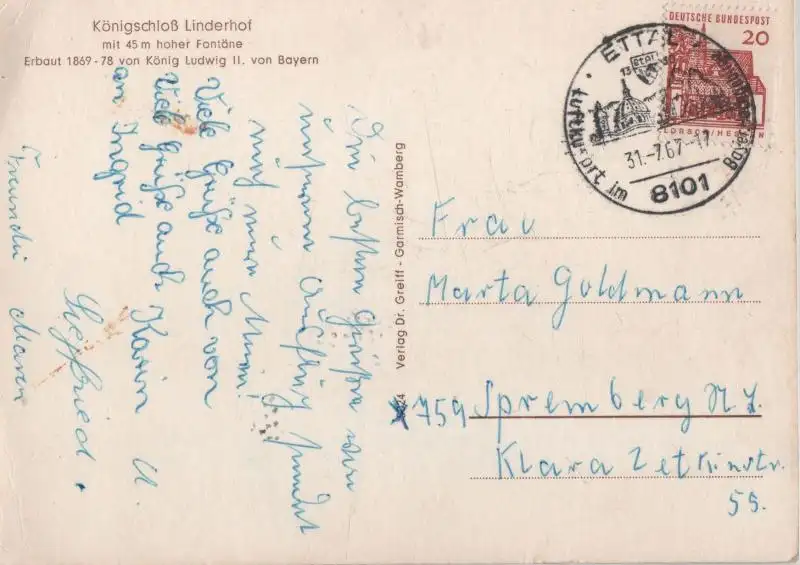 Königschloß Linderhof
mit 45 m hoher Fontäne
Erbaut 1869-78 von König Ludwig II. von Bayern
Die besten Grüße von
unserem Ausflug sendet
und
Viele Grüße auch von
Viele Grüße auch Karin u.
an Ingrid
Siegfried.
Maren
Verlag Dr. Greiff - Garmisch-Wamberg
DEUTSCHE BUNDESPOST
20
LORSCH/HESSEN
ETTAL
Luftkurort im
31.-7.67-17
8101
Frau
Marta Goldmann
759 Spremberg N.L.
Klara Zetkinstr.
59.